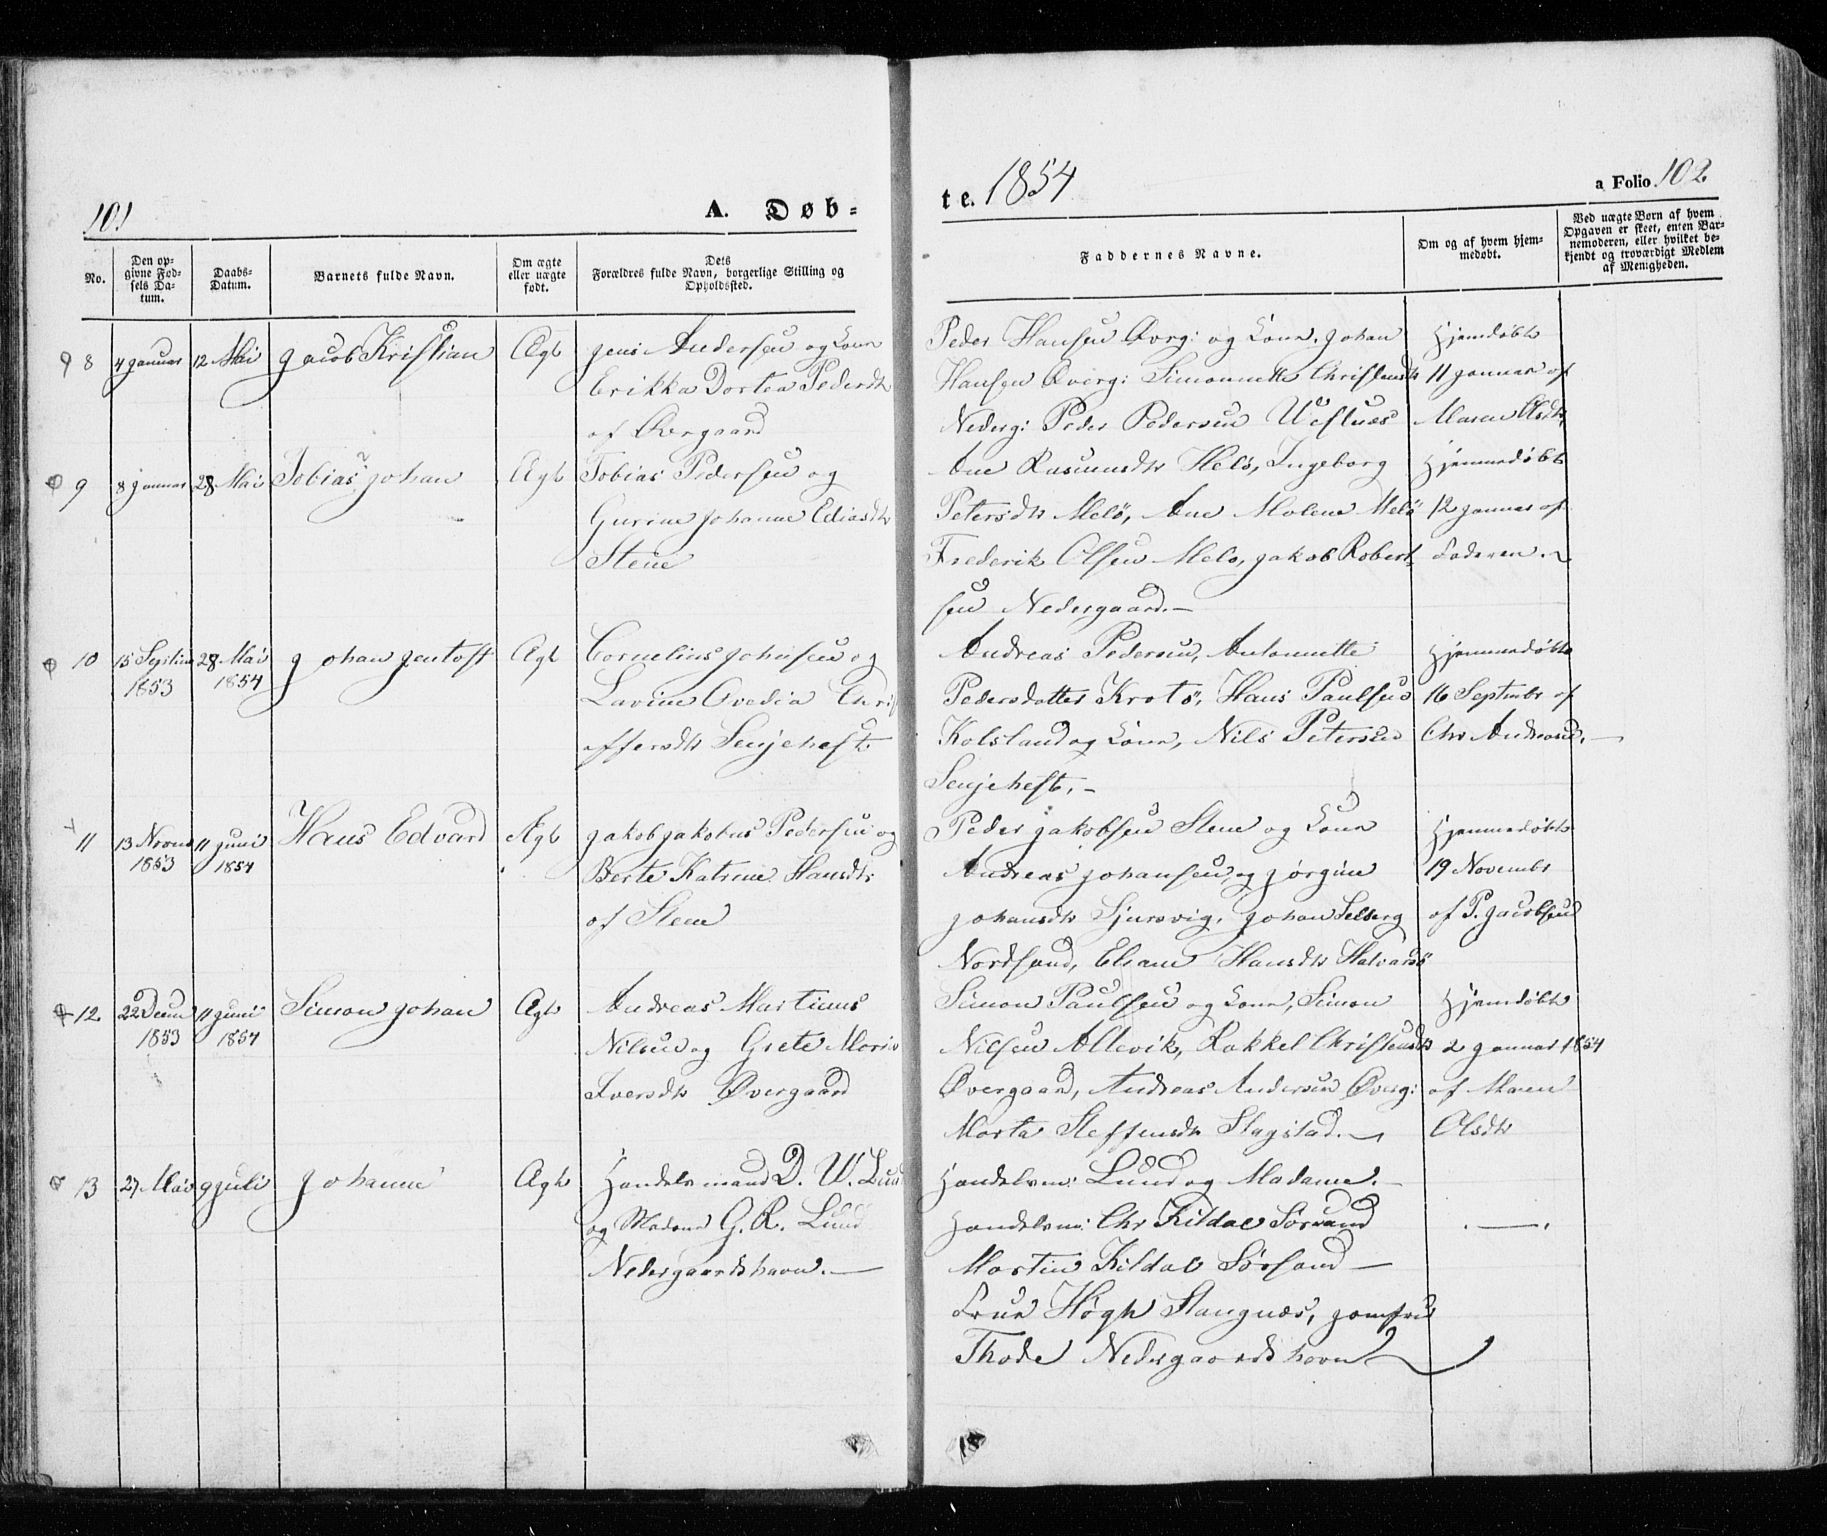 101
A. Døb-
te. 1854
a Folio 102
No.
Den opgivne Fødsels Datum.
Daabs-Datum.
Barnets fulde Navn.
Om ægte eller uægte født.
Dets Forældres fulde Navn, borgerlige Stilling og Opholdssted.
Faddernes Navne.
Om og af hvem hjemmedøbt.
Ved uægte Børn af hvem Opgaven er skeet, enten Barnemoderen, eller hvilket bekjendt og troværdigt Medlem af Menigheden.
8 4 Januar 12 Mai Jacob Kristian Ægt Jens Andersen og Kone
Erikka Dortea Pedersdtr
af Øvergaard
Peder Hansen Øverg: og Kone, Johan
Hansen Øverg: Simonnette Christensdtr
Nederg: Peder Pedersen
Hjemdøbt
11 Januar af
Maren Olsdtr
9 8 Januar 28 Mai Tobias Johan Ægt Tobias Pedersen og
Gurine Johanne Eliasdtr
Stene
Ane Rasmusdtr Melø, Ingeborg
Petersdtr Melø, Ane Malene Melø
Frederik Olsen Melø, Jakob Robert-
sen Nedergaard.
Hjemmedøbt
12 Januar af
Faderen.
10 15 Septem 1853 28 Mai 1854 Johan Jentoft Ægt Cornelius Johnsen og
Lavine Ovedia Chri
offersdtr Senjeheft
Andreas Pedersen, Antonnette
Pedersdatter Krotø, Hans Paulsen
Kolsland og Kone, Nils Petersen
Senjeheft.
Hjemmedøbt
16 Septembr af
Chr Andreasen.
11 13 Novem 1853 11 Juni 1854 Hans Edvard Ægt Jakob Jakobus Pedersen og
Berte Katrine Hansdtr
af Stene
Peder Jakobsen Stene og Kone
Andreas Johansen og Jørgine
Johansdtr Sjursvig, Johan Selberg
Nordsand, Elsane Hansdtr Halvarsø
Hjemmedøbt
19 Novembr
af P. Jacobsen
12 22 Decem 1853 11 Juni 1854 Simon Johan Ægt Andreas Martinus
Nilsen og Grete Marie
Iversdtr Øvergaard
Simon Paulsen og Kone, Simon
Nilsen Allevik, Rakkel Christensdtr
Øvergaard, Andreas Andersen Øverg:
Marta Steffensdtr Slagstad.
Hjemdøbt
2 Januar 1854
af Maren
Olsdtr
13 27 Mai 9 Juli Johanne Ægt Handelsmand D. W. Lund
og Madame G. R. Lund
Nedergaardshavn.
Handelsm: Lund og Madame.
Handelsm: Chr Kildal Sørsand
Martin Kildal Sørsand
Frue Høgh Stangnæs, Jomfrue
Thode Nedergaardshavn